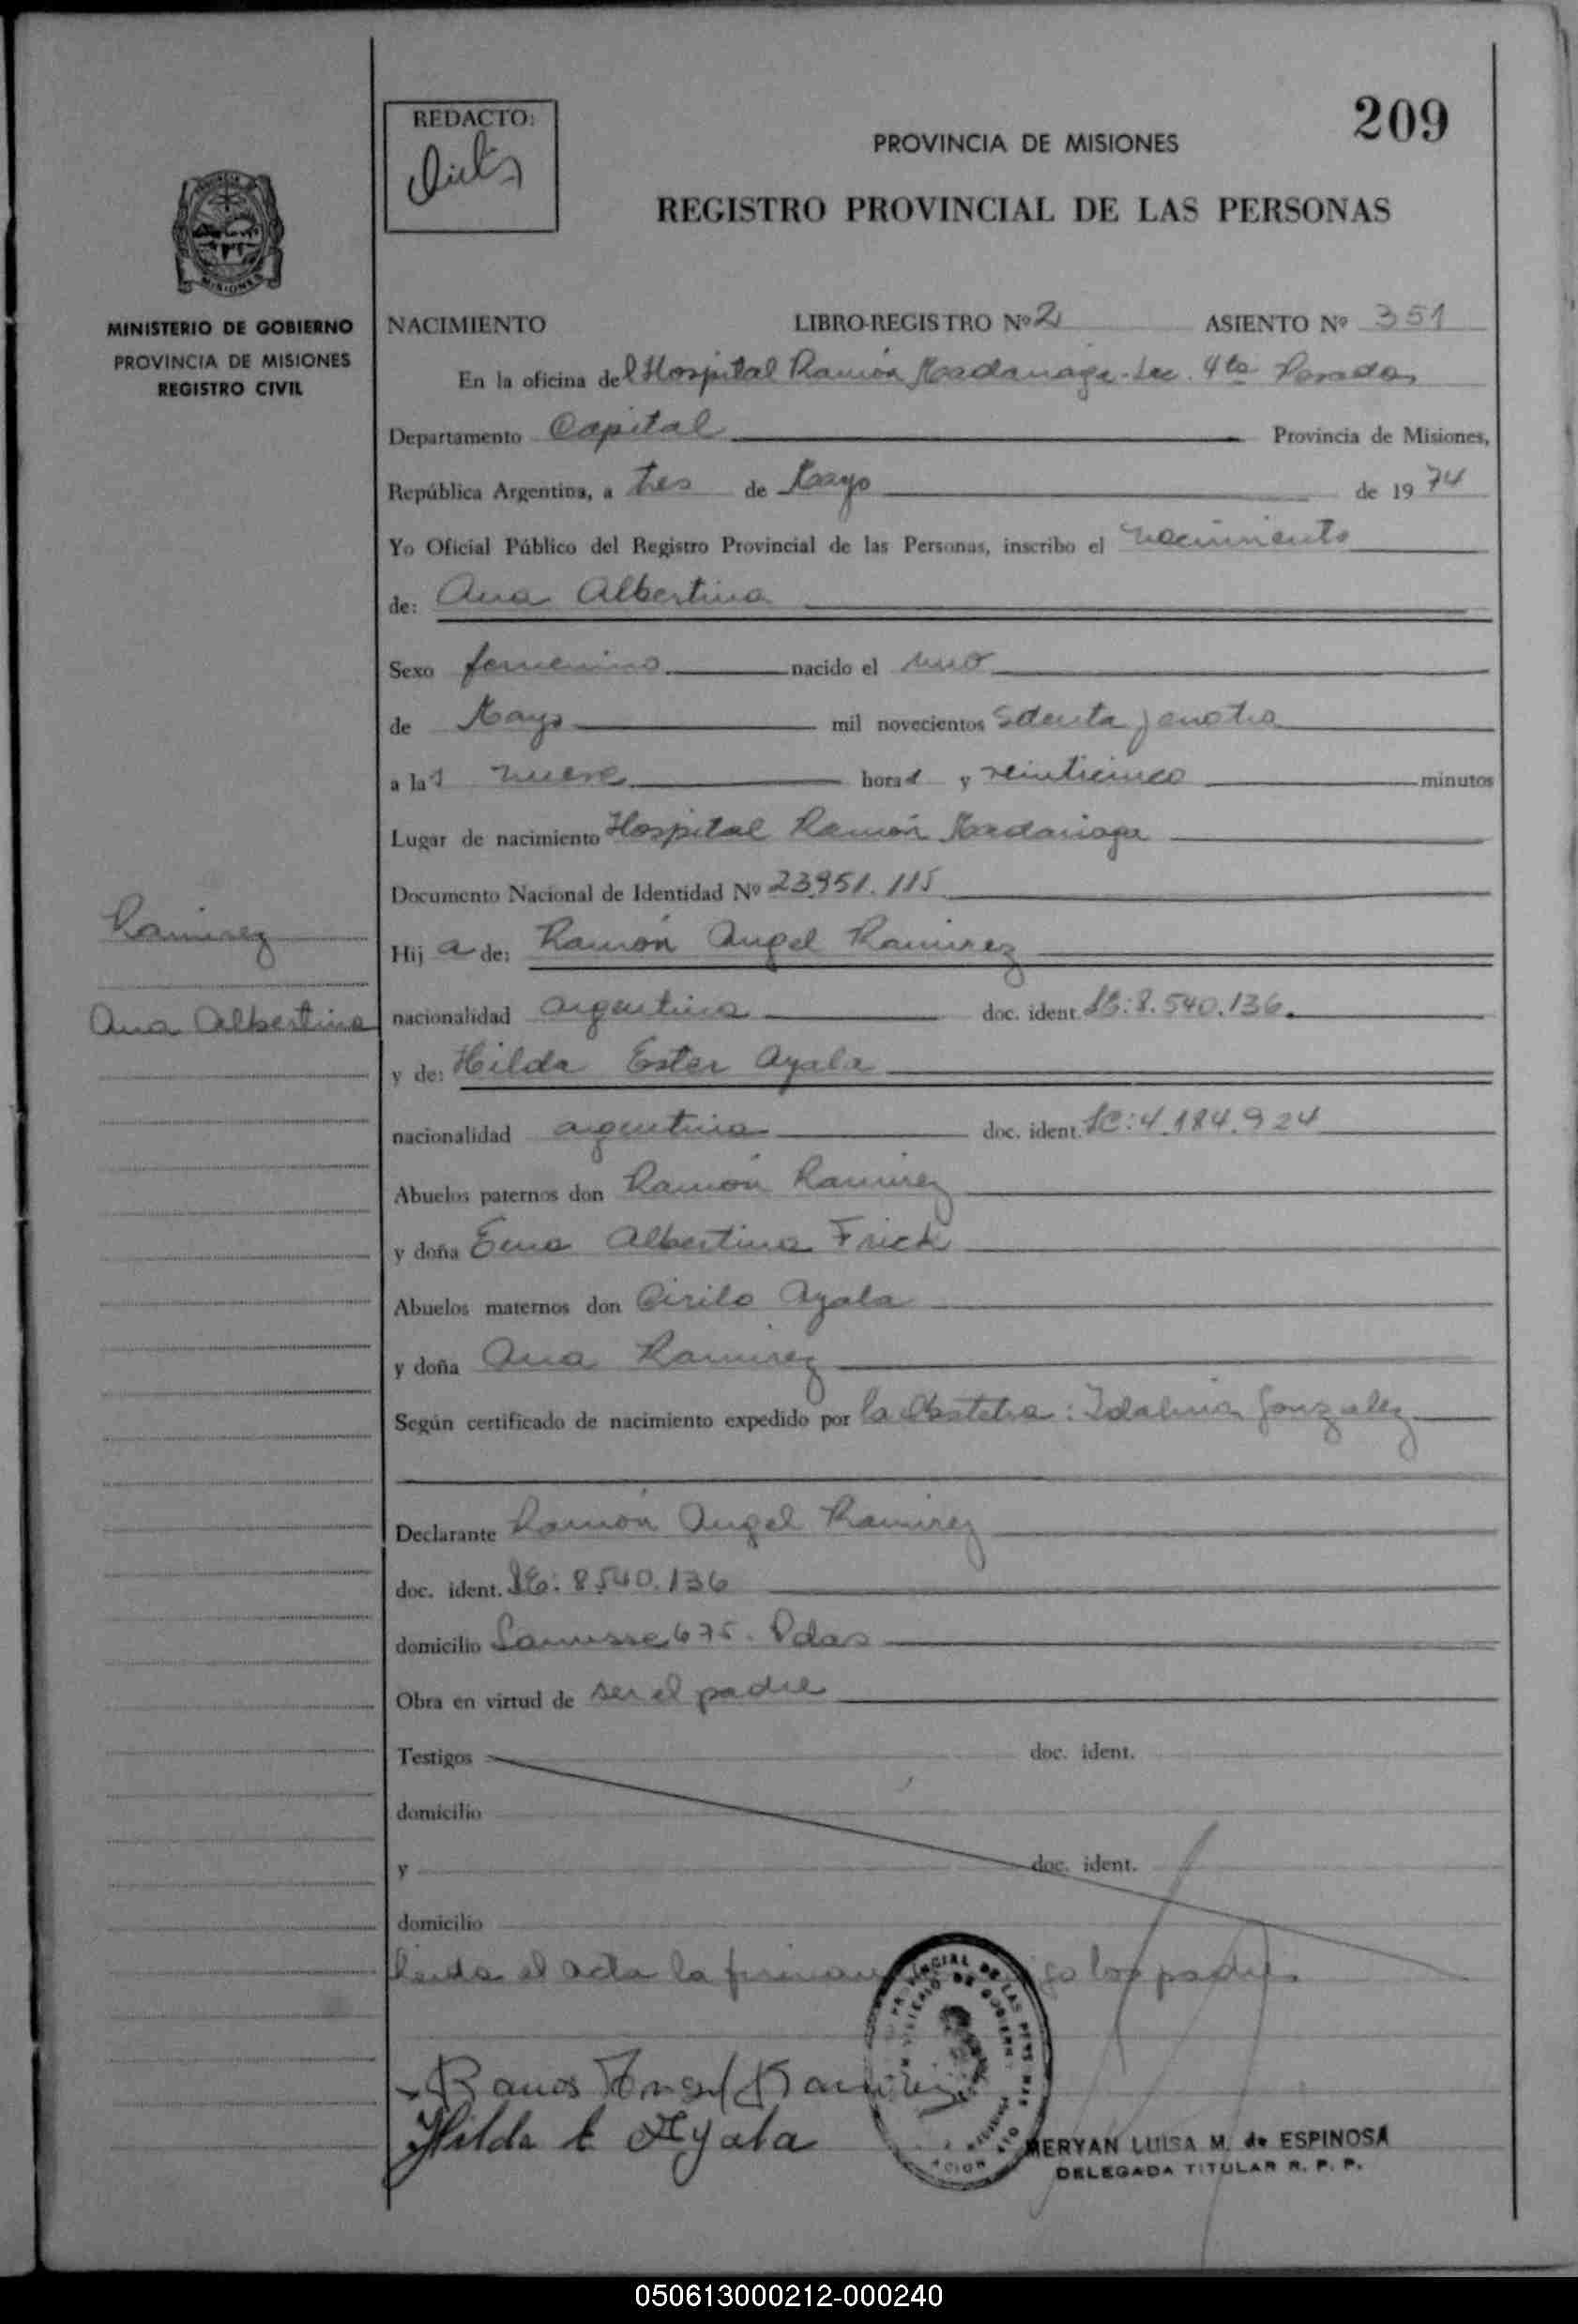 209
REDACTO:
PROVINCIA DE MISIONES
REGISTRO PROVINCIAL DE LAS PERSONAS
MISIONES
MINISTERIO DE GOBIERNO
PROVINCIA DE MISIONES
REGISTRO CIVIL
NACIMIENTO LIBRO-REGISTRO Nº 2 ASIENTO Nº 351
En la oficina del Hospital Ramón Madariaga - Sec. 4ta Posadas
Departamento Capital Provincia de Misiones,
República Argentina, a tres de Mayo de 1974
Yo Oficial Público del Registro Provincial de las Personas, inscribo el nacimiento
de: Ana Albertina
Sexo femenino nacido el uno
de Mayo mil novecientos setenta y cuatro
a las nueve horas y veinticinco minutos
Lugar de nacimiento Hospital Ramón Madariaga
Documento Nacional de Identidad Nº 23.951.115
Ramirez
Ana Albertina
Hija de: Ramón Angel Ramirez
nacionalidad argentina doc. ident. LE: 8.540.136
y de: Hilda Ester Ayala
nacionalidad argentina doc. ident. LC: 4.184.924
Abuelos paternos don Ramón Ramirez
y doña Ema Albertina Frick
Abuelos maternos don Cirilo Ayala
y doña Ana Ramirez
Según certificado de nacimiento expedido por la Obstetra: Idalina Gonzalez
Declarante Ramón Angel Ramirez
doc. ident. LE: 8.540.136
domicilio 675. Pdas
Obra en virtud de ser el padre
Testigos doc. ident.
domicilio
y doc. ident.
domicilio
Leida el acta la firman los padres
Ramon Angel Ramirez
Hilda E Ayala
MERYAN LUISA M. de ESPINOSA
DELEGADA TITULAR R. P. P.
050613000212-000240